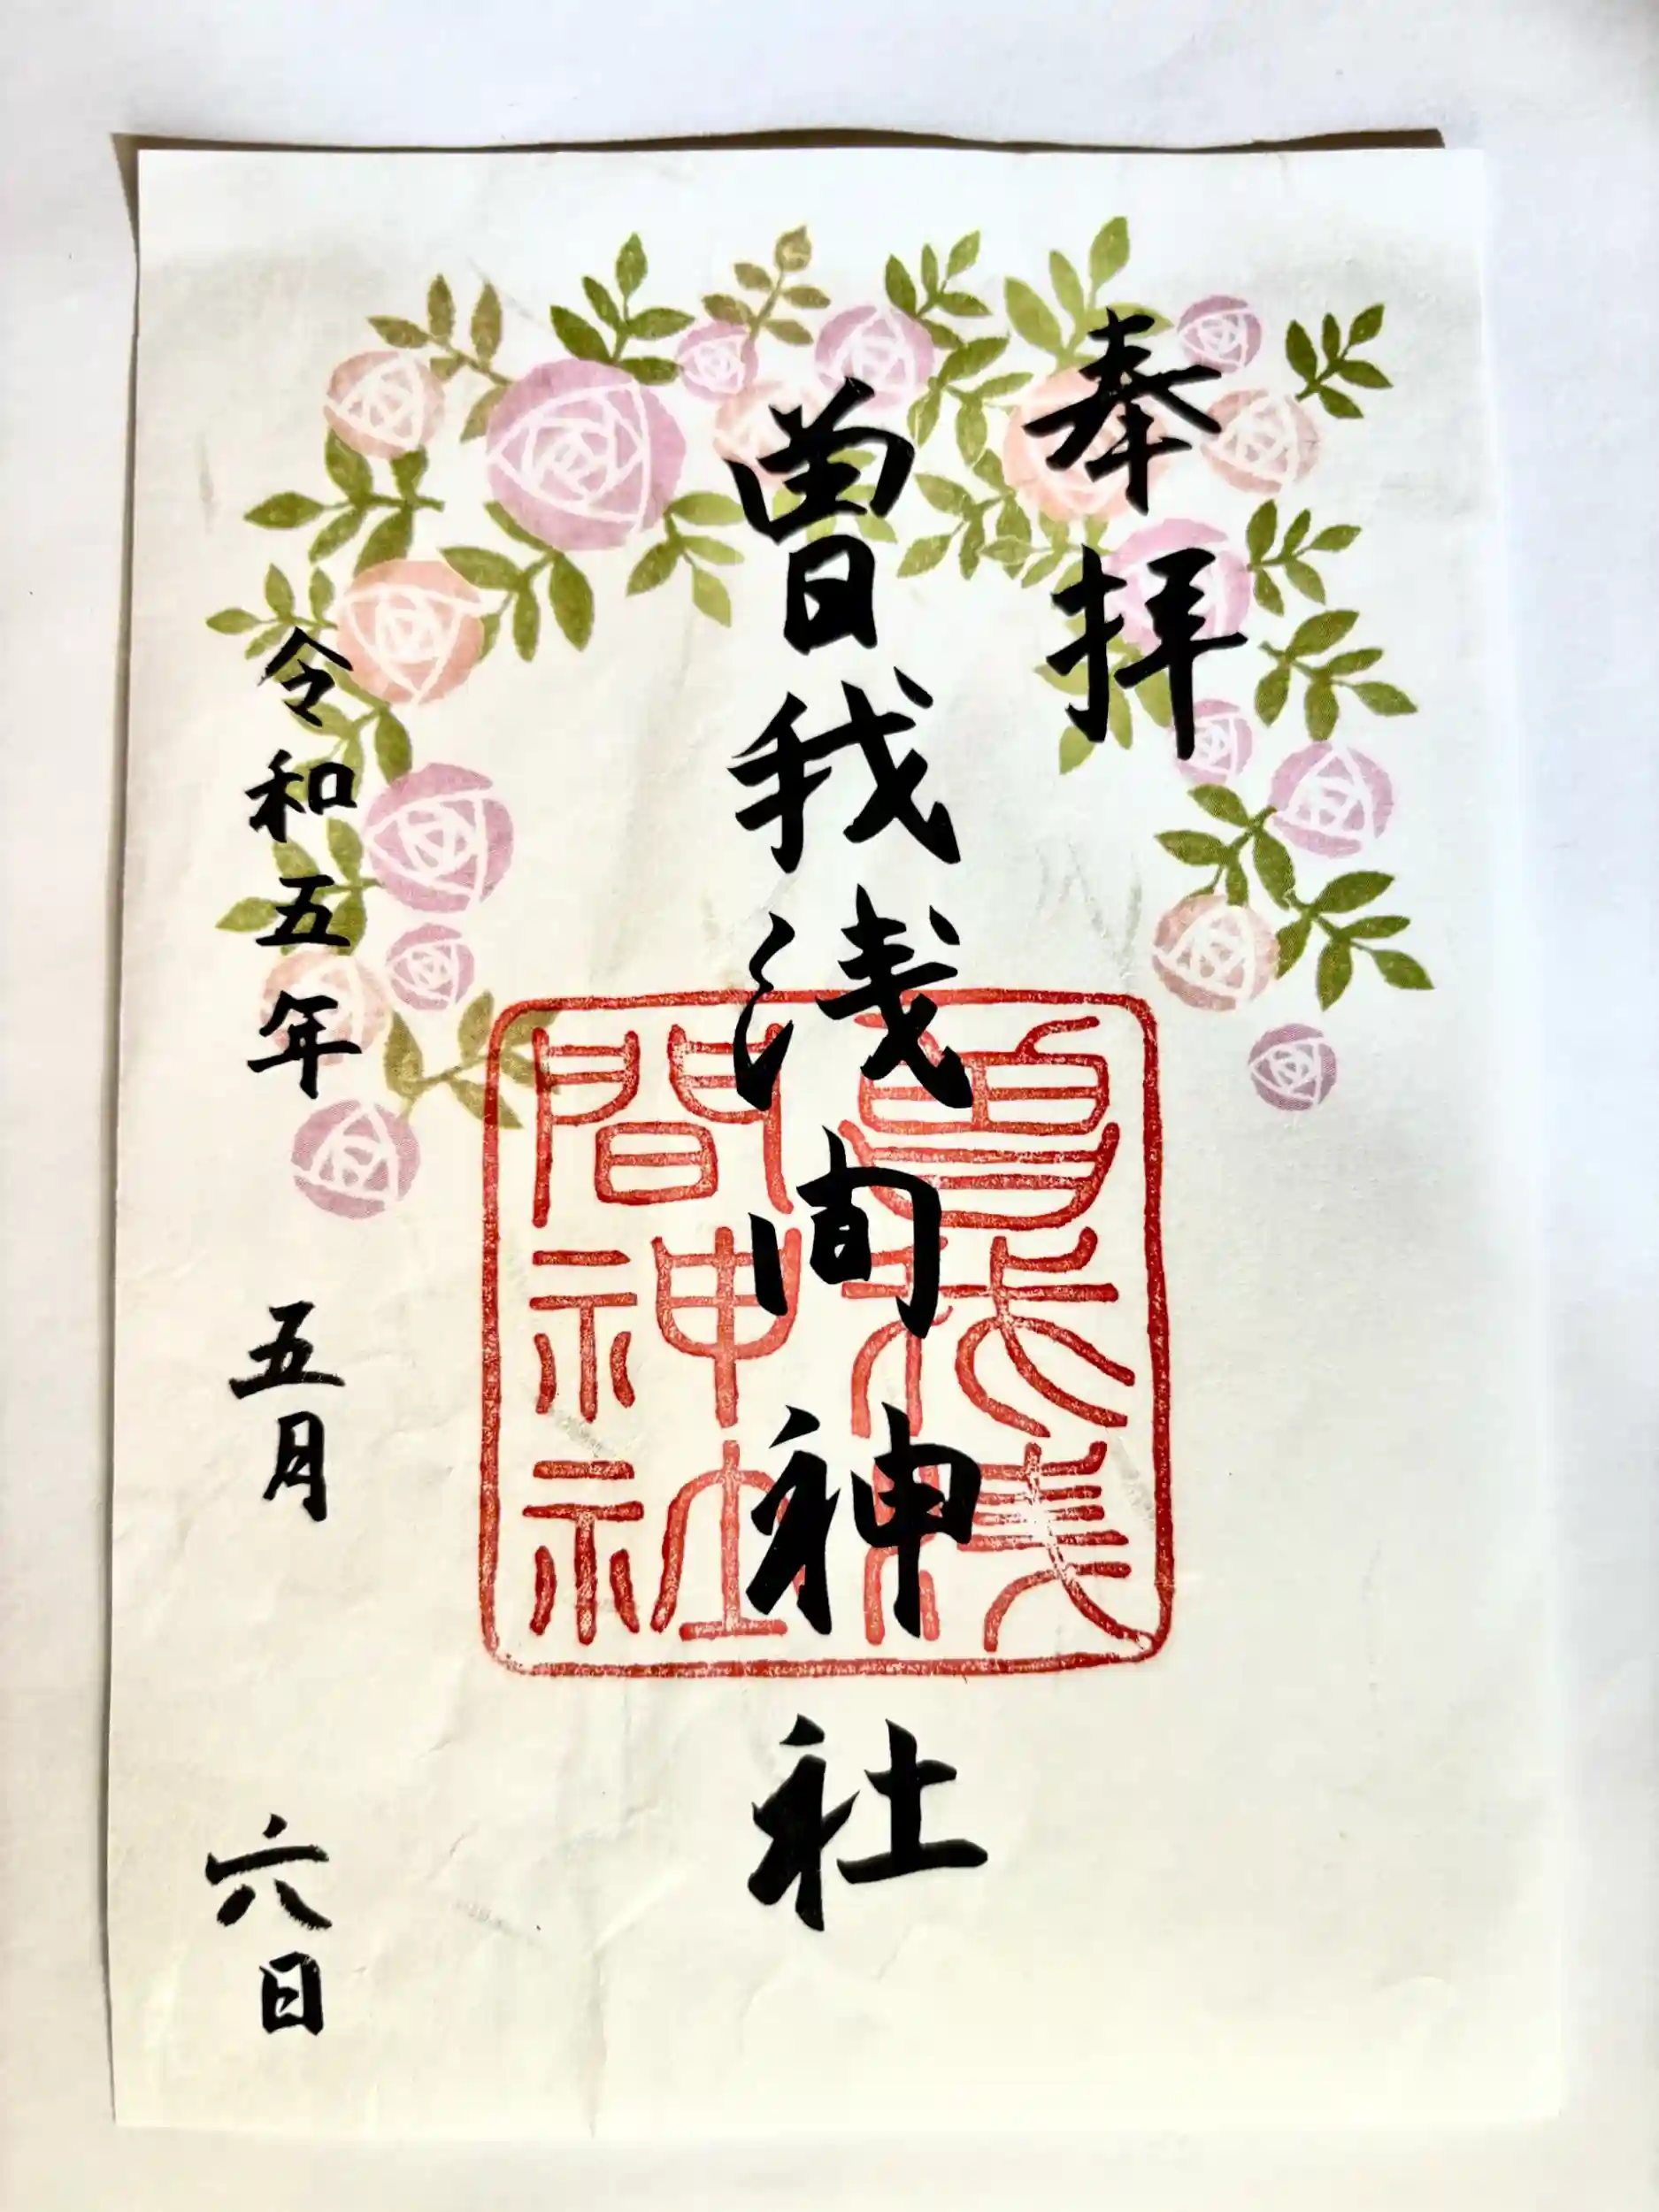 奉拝
曽我浅间神社
曽我浅間神社
令和五年 五月 六日